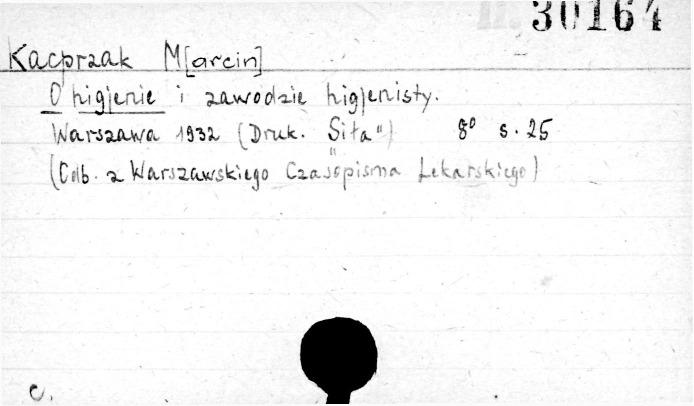 30164
Kacprzak M[arcin]
O higjenie i zawodzie higjenisty.
Warszawa 1932 (Druk. „Siła") 8° s. 25
(Odb. z Warszawskiego Czasopisma Lekarskiego)
c.